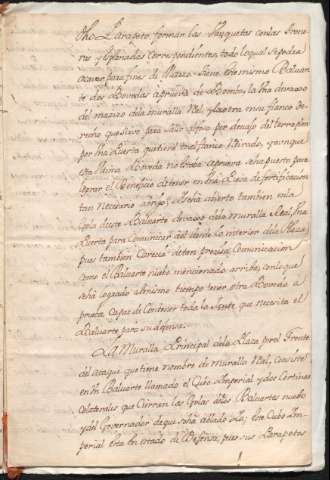 el Parapeto, formar las Banquetas con las Trone
ras y Esplanadas correspondientes, todo lo qual se podrá
acavar para fines de Marzo. Tiene este mismo Baluar
te dos Bovedas aprueva de Bomba, la una devajo
de mazizo de la muralla Rl. y la otra en su flanco De
recho que sirve para salir al foso por devajo del terraplen
por una Puerta que tiene en el flanco Retirado, y aunque
esta ultima Boveda no estava aprueva se ha puesto para
lograr el Beneficio de tener en una Plaza de fortificacion
tan necesario abrigo; se esta abierto tambien en la
Gola deste Baluarte devajo de la muralla Real, una
Puerta para Comunicar a el desde lo interior de la Plaza
pues tambien Carecia de tan precisa Comunicacion
como el Baluarte nuebo mencionado arriba, con la que
se ha logrado al mismo tiempo tener otra Boveda a
prueva Capaz de Contener toda la Gente que necesita el
Baluarte para su defensa.
La Muralla Principal de la Plaza por el Frente
del ataque que tiene nombre de muralla Real, Consiste
en un Baluarte llamado el Cubo Imperial y dos Cortinas
Colaterales que Cierran las Golas de los Baluartes nuebo
y del Governador de que se ha ablado ya; este Cubo Im
perial esta en estado de Defensa, pues sus Parapetos